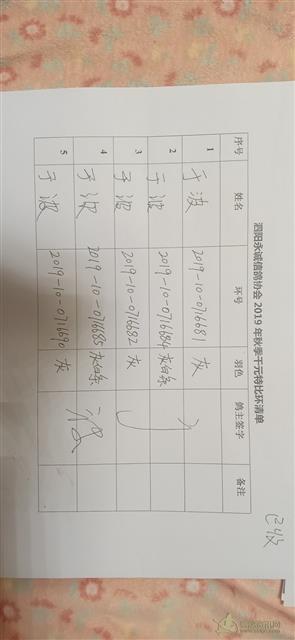 已收
泗阳永诚信鸽协会 2019 年秋季千元特比环清单
序号 姓名 环号 羽色 鸽主签字 备注
1 于波 2019-10-0716681 灰
2 于波 2019-10-0716684 灰白条
3 于波 2019-10-0716682 灰
4 于波 2019-10-0716685 灰白条 于波
5 于波 2019-10-0716690 灰